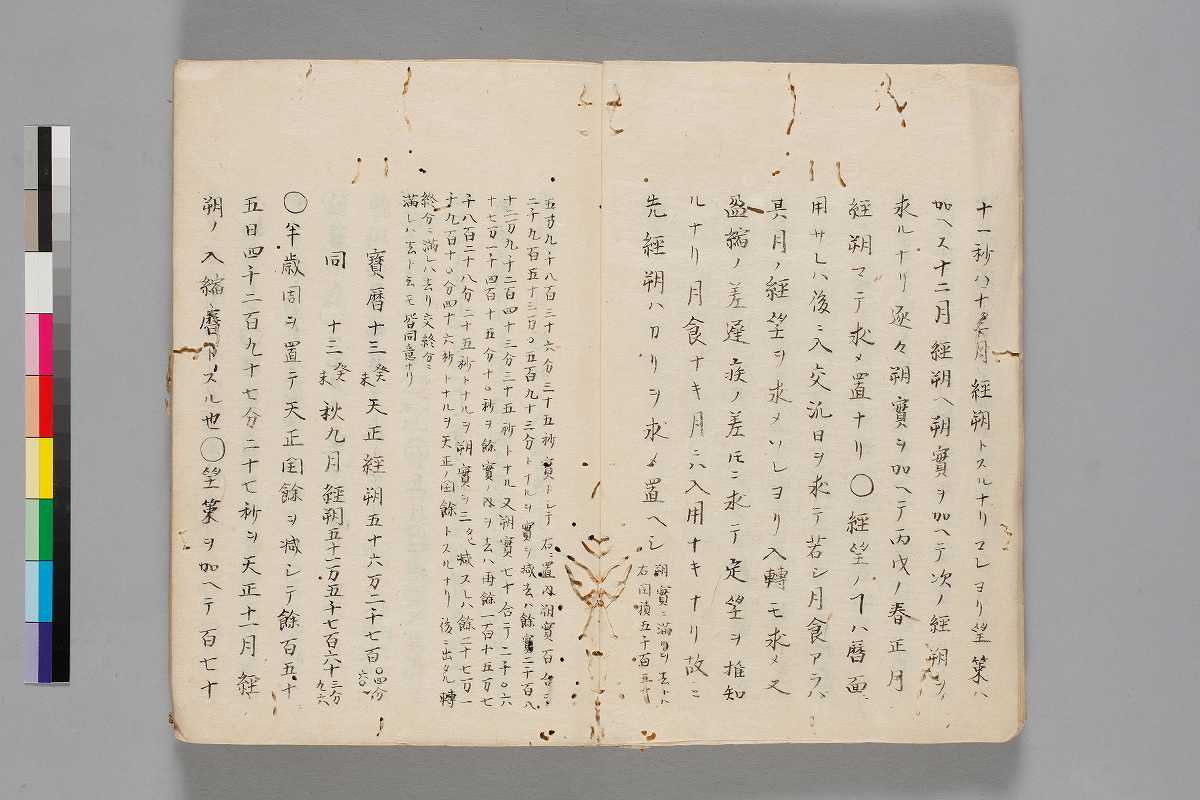 十一秒ハ十一月経朔トスルナリコレヨリ望策ハ
加ヘス十二月経朔ヘ朔實ヲ加ヘテ次ノ経朔ヲ
求ルナリ逐々朔實ヲ加ヘテ丙戌ノ春正月
経朔マテ求メ置ナリ〇経望ノヿハ暦面
用サレハ後ニ入交汎日ヲ求テ若シ月食アラハ
其月ノ経望ヲ求メソレヨリ入轉モ求メ又
盈縮ノ差遲疾ノ差ﾄﾓニ求テ定望ヲ推知
ルナリ月食ナキ月ニハ入用ナキナリ故ニ
先経朔ハカリヲ求メ置ヘシ
朔實ニ滿ルヲ去トハ
右閏積五千百五十
五万九千八百三十六分三十五秒トシテ右ニ置只朔實百合ニ
二千九百五十三万〇五百九十三分トナルヲ實ヲ減去ハ餘實二千百八
十二万九千二百四十三分三十五秒トナル又朔實七十合テ二千〇六
十七万一千四百十五分十〇秒ヲ餘實ノ内ヲ去ハ再餘一百十五万七
千八百二十八分二十五秒トナルヲ朔實ヲ三タヒ減スレハ餘二十七万一
千九百十〇分四十六秒トナルヲ天正ノ閏餘トスルナリ後ニ出タル轉
終分ニ滿レハ去リ交終分ニ
滿レハ去ト云モ皆同意ナリ
寶暦十三癸未天正経朔五十六万二千七百〇四分六〇
同 十三癸未秋九月経朔五十一万五千七百六十三分九六
〇半歳周ヲ置テ天正閏餘ヲ減シテ餘百五十
五日四千二百九十七分二十七秒ヲ天正十一月経
朔ノ入縮暦トスル也〇望策ヲ加ヘテ百七十